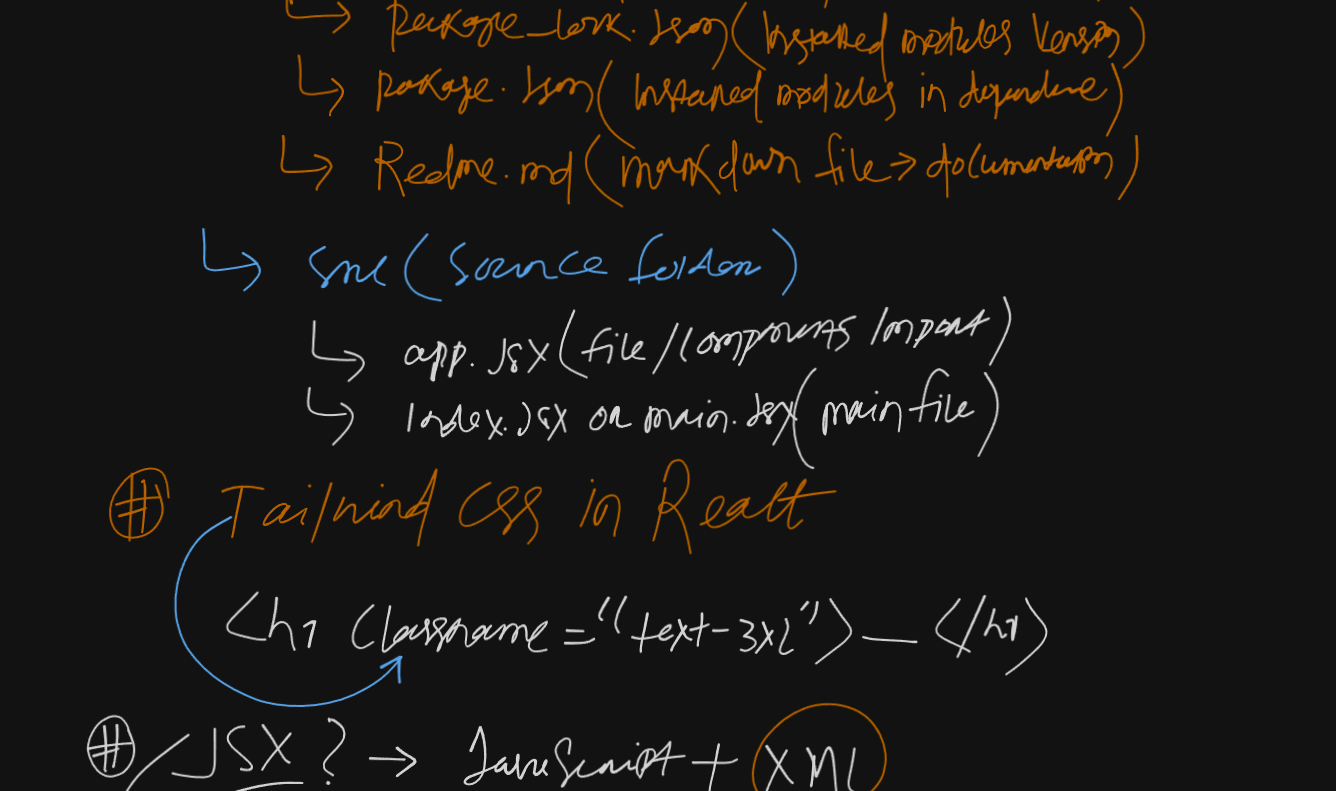 ↳ package_lock.json (Installed modules version)
↳ package.json (Installed modules in dependence)
↳ Redme.md (markdown file → documentation)
↳ src (source folder)
↳ app.jsx (file/components import)
↳ index.jsx or main.jsx (main file)
# Tailwind CSS in React
<h1 Classname="text-3xl">—</h1>
# JSX? → JavaScript + XML